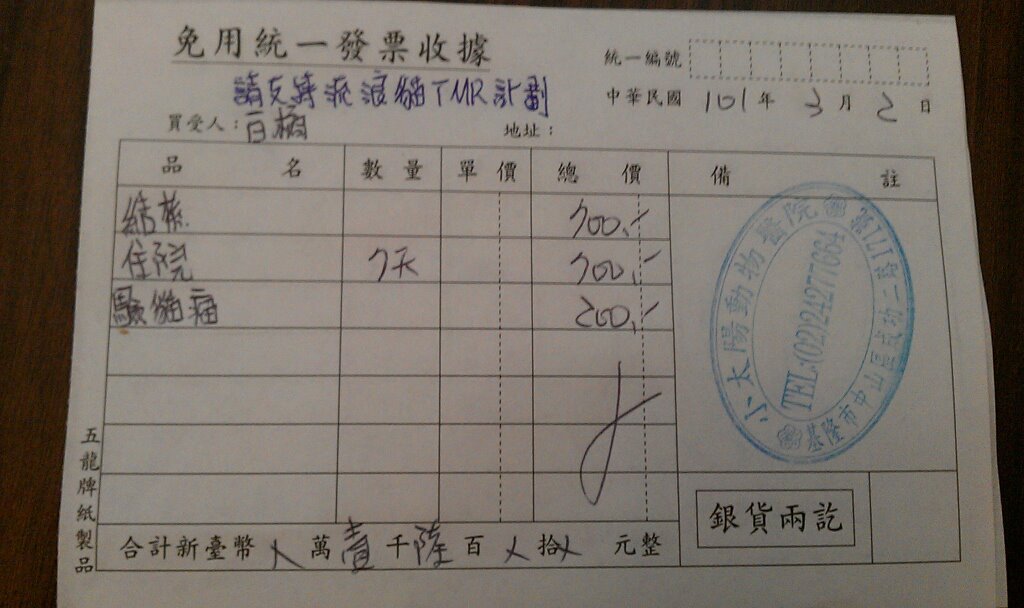 免用統一發票收據
統一編號
請支持流浪貓TMR計劃
中華民國 101年 3月 2日
買受人：百桐 地址：
品名 數量 單價 總價 備註
結紮 700.-
住院 7天 700.-
驗貓瘟 200.-
小太陽動物醫院
TEL:(02)24277664
基隆市中山區成功二路171號
五龍牌紙製品
合計新臺幣 萬壹千陸百 拾 元整
銀貨兩訖